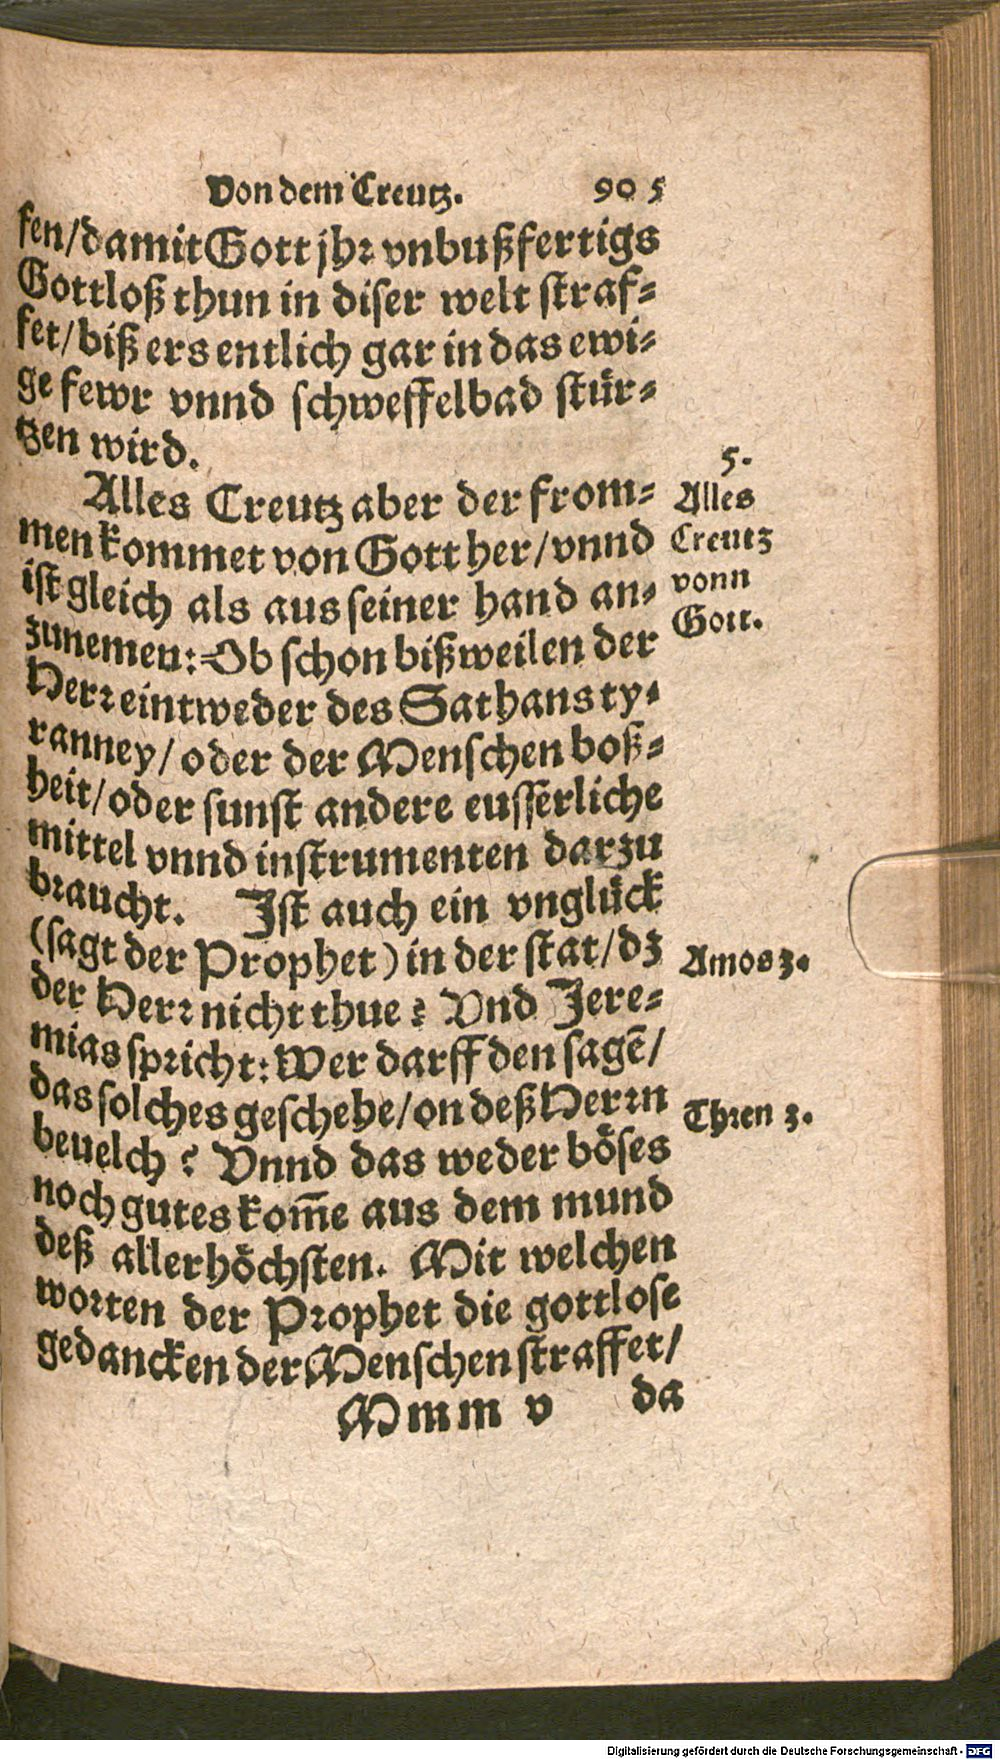 Von dem Creutz. 905
fen/damit Gott jhr vnbußfertigs
Gottloß thun in diser welt straf-
fet/biß ers entlich gar in das ewi-
ge fewr vnnd schweffelbad stür-
tzen wird.
Alles Creutz aber der from-
men kommet von Gott her/vnnd
ist gleich als aus seiner hand an-
zunemen: Ob schon bißweilen der
Herr eintweder des Sathans ty-
ranney/oder der Menschen boß-
heit/oder sunst andere eusserliche
mittel vnnd instrumenten darzu
braucht. Ist auch ein vnglück
(sagt der Prophet) in der stat/dz
der Herr nicht thue? Vnd Jere-
mias spricht: Wer darff den sagē/
das solches geschehe/on deß Herrn
beuelch? Vnnd das weder böses
noch gutes kom̄e aus dem mund
deß allerhöchsten. Mit welchen
worten der Prophet die gottlose
gedancken der Menschen straffet/
Mmm v da
5.
Alles
Creutz
vonn
Gott.
Amos 3.
Thren 3.
Digitalisierung gefördert durch die Deutsche Forschungsgemeinschaft - DFG